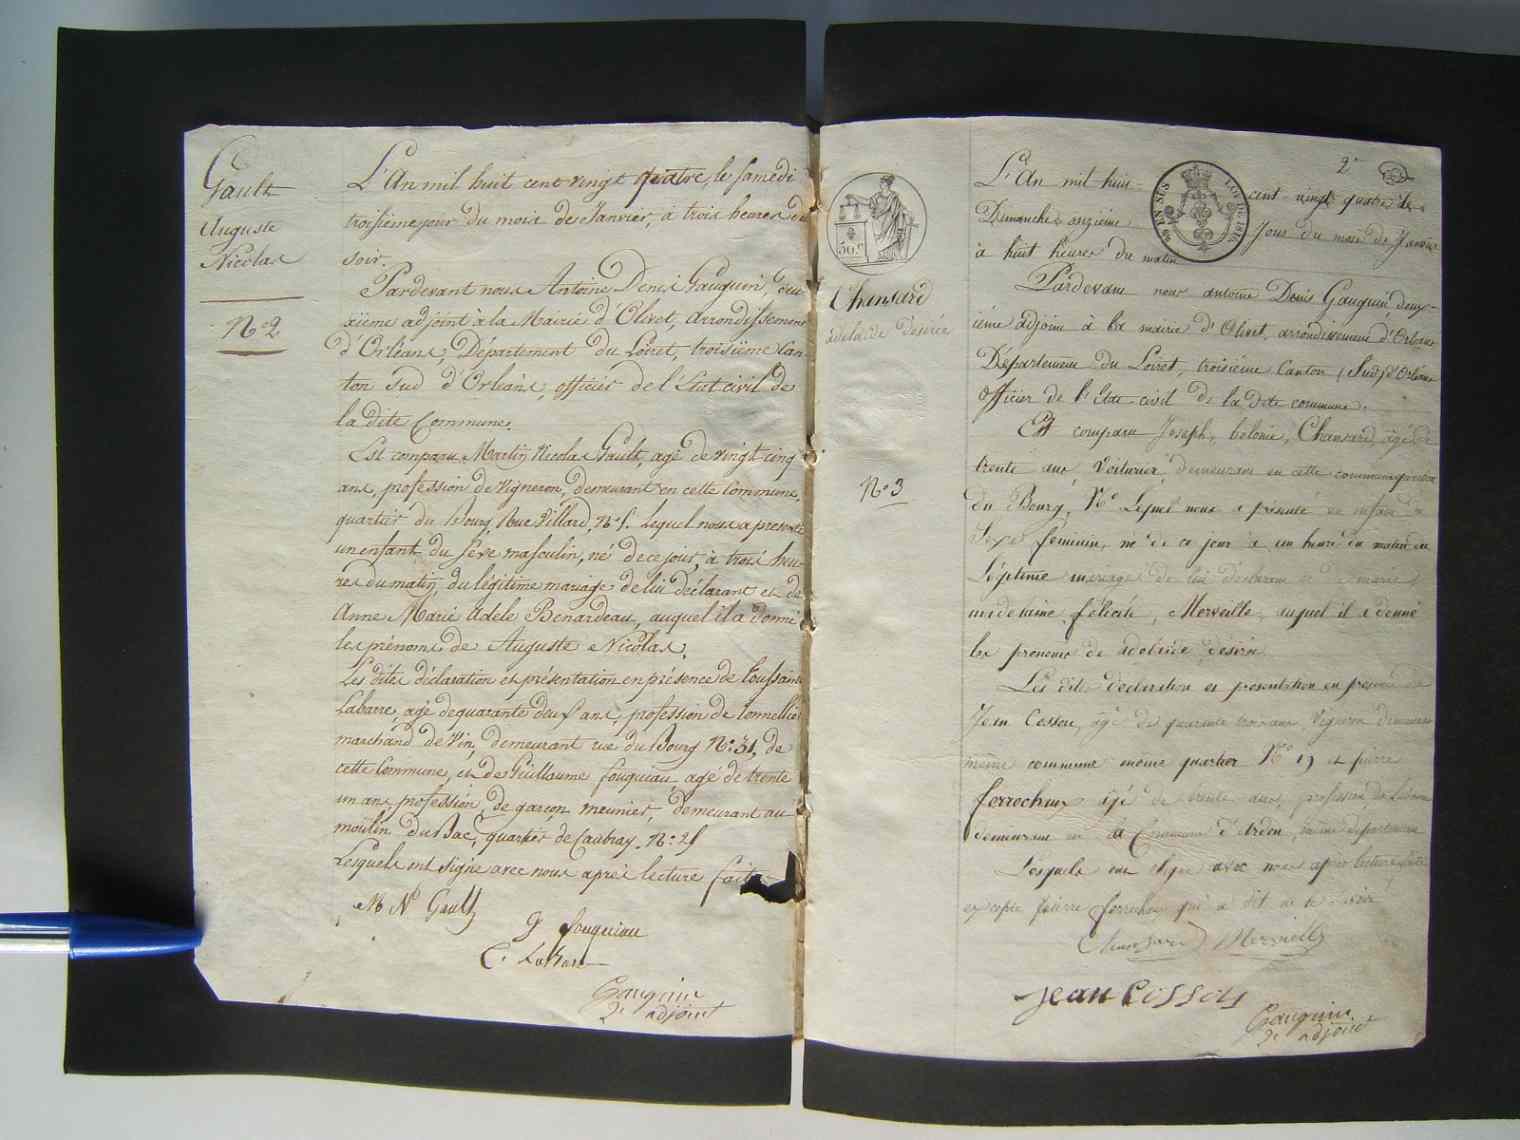 Gault
Auguste
Nicolas
N.o 2
L'An mil huit cent vingt quatre, le samedi
troisième jour du mois de Janvier, à trois heures du
soir.
Pardevant nous Antoine Denis Gauguin, deu-
xième adjoint à la Mairie d'Olivet, arrondissement
d'Orléans, Département du Loiret, troisième Can-
ton sud d'Orléans, officier de l'Etat civil de
la dite Commune.
Est comparu Martin Nicolas Gault, agé de vingt cinq
ans, profession de vigneron, demeurant en cette Commune,
quartier du bourg, Rue N.o Lequel nous a présenté
un enfant du sexe masculin, né de ce jour, à trois heu-
res du matin, du légitime mariage de lui déclarant et de
Anne Marie Adele Benardeau, auquel il a donné
les prénoms de Auguste Nicolas.
Les dites déclaration et présentation en présence de Toussaint
Labarre, agé de quarante deux ans, profession de tonnellier
marchand de vin, demeurant rue du Bourg N.o 31, de
cette Commune, et de Guillaume fouquiau, agé de trente
un ans, profession, de garçon meunier, demeurant au
moulin du Bac, quartier de Caubray, N.o
Lesquels ont signé avec nous après lecture faite
M N Gault
G fouquiau
Gauguin
2e adjoint
2e
50 c
EN SUS
LOI DE 1816
Chansard
adelaïde Desirée
N.o 3
L'An mil huit
cent vingt quatre le
Dimanche onzième
Jour du mois de Janvier
à huit heures du matin
Pardevant nous antoine Denis Gauguin, deux-
ième adjoint à la mairie d'Olivet, arrondissement d'Orléans
Département du Loiret, troisième Canton (Sud) d'Orléans
Officier de l'Etat civil de la dite commune.
Est comparu Joseph, Chansard, agé de
trente ans, Voiturier, demeurant en cette commune quartier
du Bourg, N.o Lequel nous a présenté un enfant du
Sexe feminin, né de ce jour à un heure du matin du
légitime mariage de lui déclarant et de marie
madelaine félicité, Merveille, auquel il a donné
les prenoms de adelaïde, desirée
Les dites declaration et presentation en presence de
Jean Cosson, agé de quarante trois ans, Vigneron demeurant
même commune même quartier N.o 19 et pierre
ferrocheux agé de trente ans, profession de
demeurant en la Commune d'Ardon, même departement
Lesquels ont signé avec nous après lecture faite
excepté pierre ferrocheux qui a dit ne le savoir
Chansard Merveille
jean Cosson
Gauguin
2e adjoint